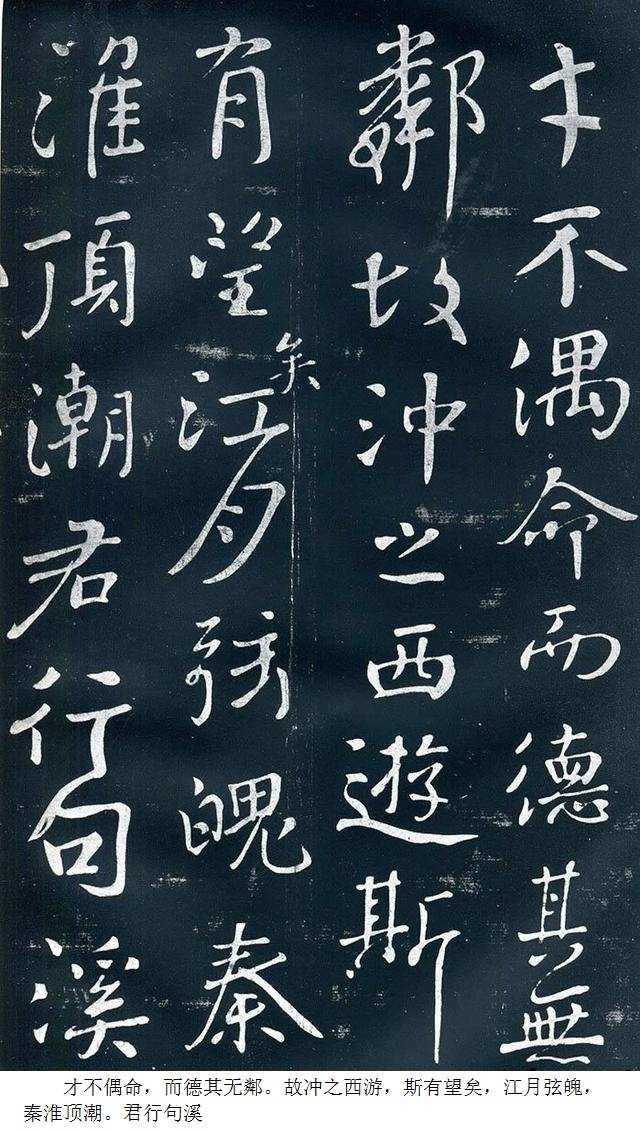 才不偶命而德其無
鄰故沖之西遊斯
有望矣江月弦魄秦
淮頂潮君行句溪
才不偶命，而德其无鄰。故冲之西游，斯有望矣，江月弦魄，
秦淮顶潮。君行句溪